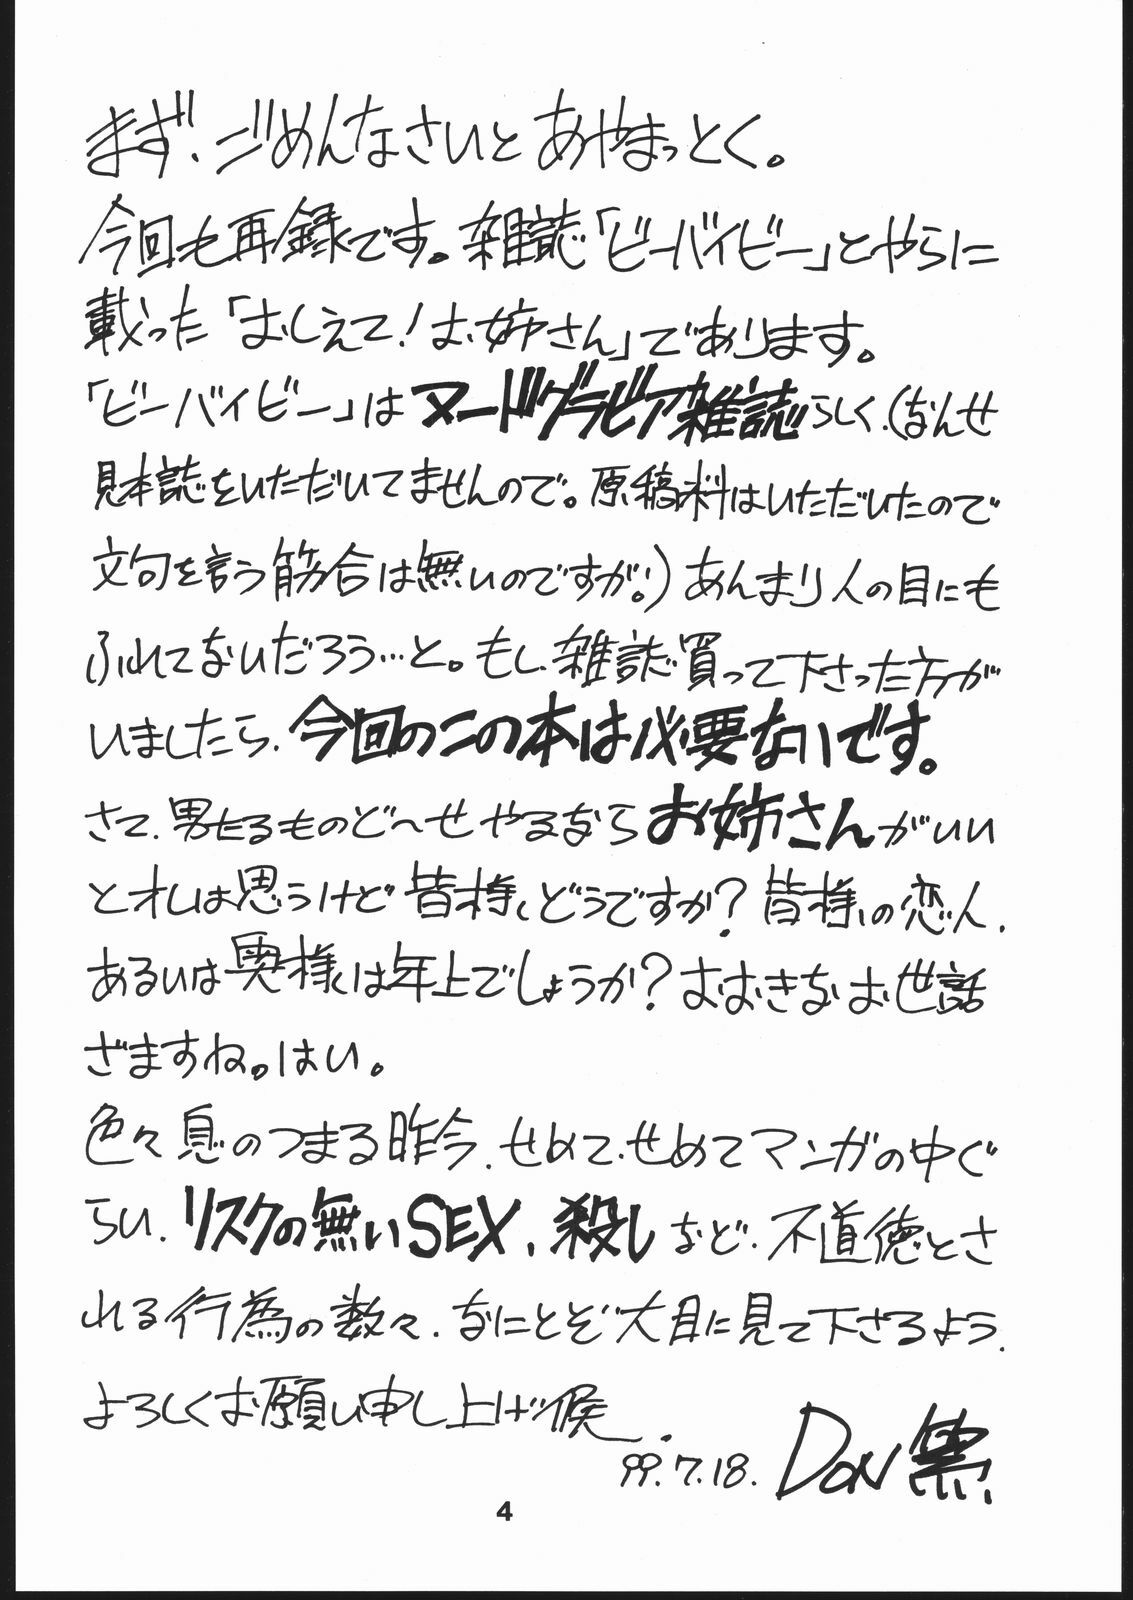 まず、ごめんなさいとあやまっとく。
今回も再録です。雑誌「ビーバイビー」とやらに
載った「おしえて！お姉さん」であります。
「ビーバイビー」はヌードグラビア雑誌らしく、(なんせ
見本誌をいただいてませんので。原稿料はいただいたので
文句を言う筋合は無いのですが。)あんまり人の目にも
ふれてないだろう…と。もし、雑誌買って下さった方が
いましたら、今回のこの本は必要ないです。
さて、男たるものど〜せやるならお姉さんがいい
とオレは思うけど皆様、どうですか？皆様の恋人、
あるいは奥様は年上でしょうか？おおきなお世話
ざますね。はい。
色々息のつまる昨今、せめて、せめてマンガの中ぐ
らい、リスクの無いSEX、殺しなど、不道徳とさ
れる行為の数々、なにとぞ大目に見て下さるよう、
よろしくお願い申し上げ候。
99.7.18. Don黒
4